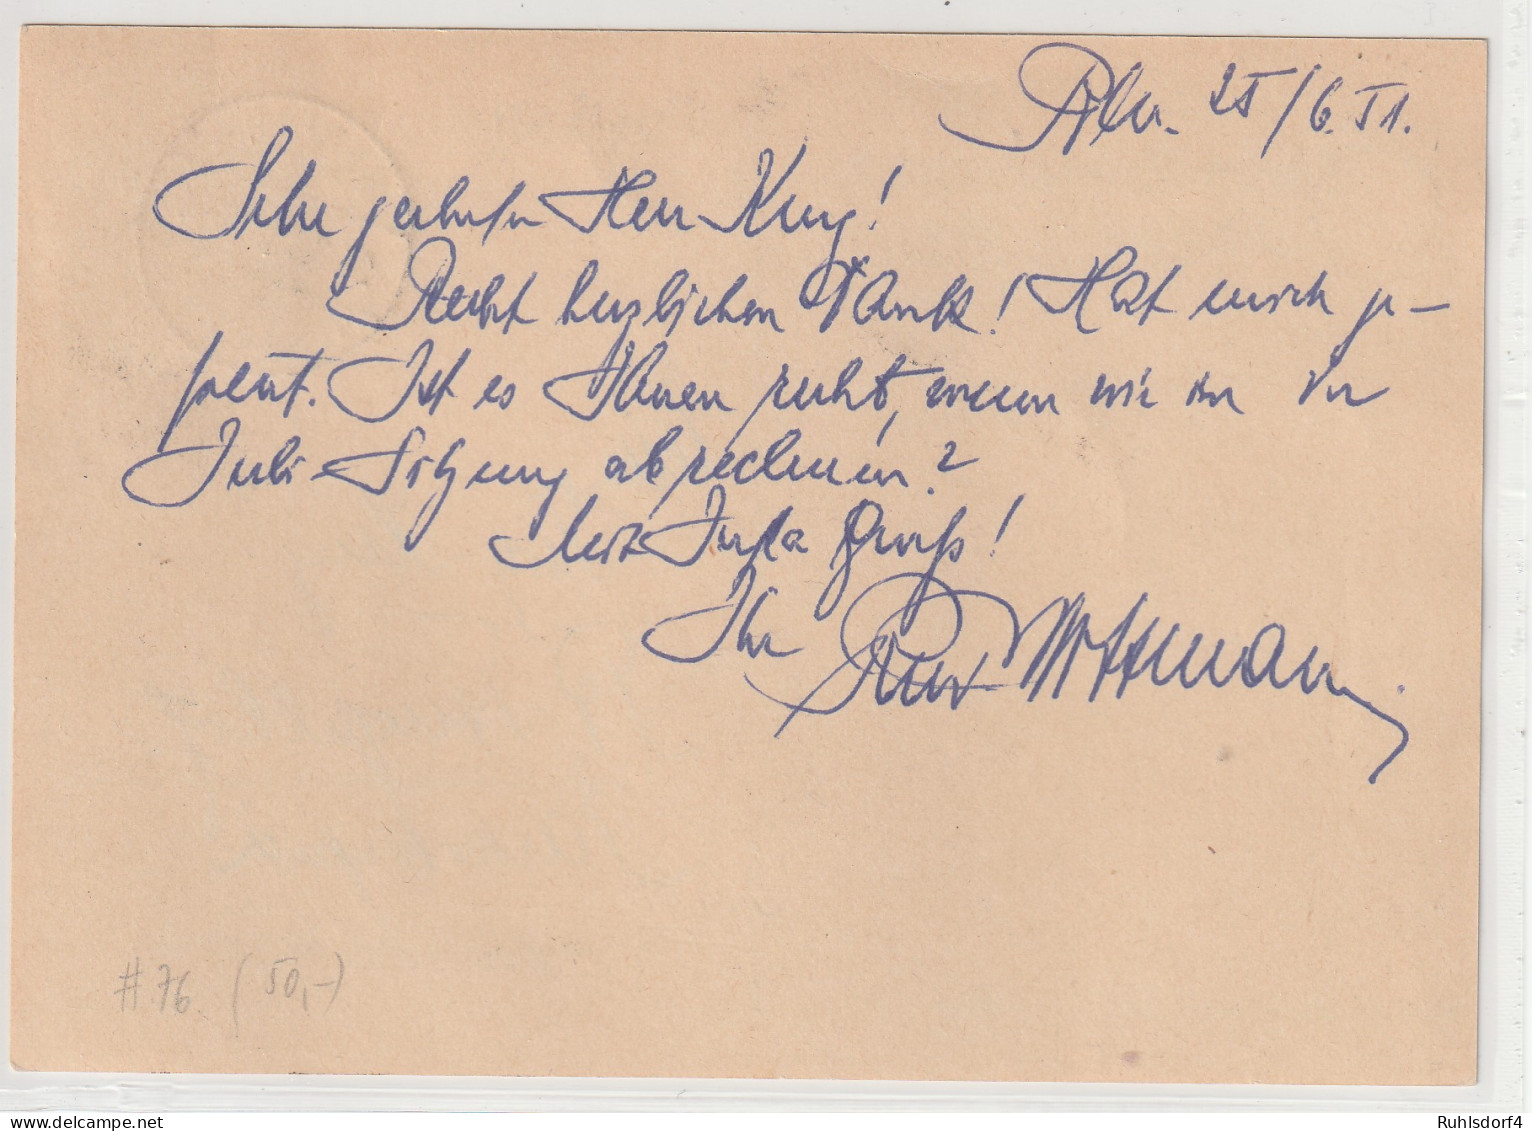 Bln. 25/6.51.
Sehr geehrter Herr Krug!
Recht herzlichen Dank! Hat mich ge-
freut. Ist es Ihnen recht, wenn wir in der
Juli-Sitzung abrechnen?
Mit Gruß!
Ihr Kurt
#76 (50,-)
delcampe.net
Ruhlsdorf4